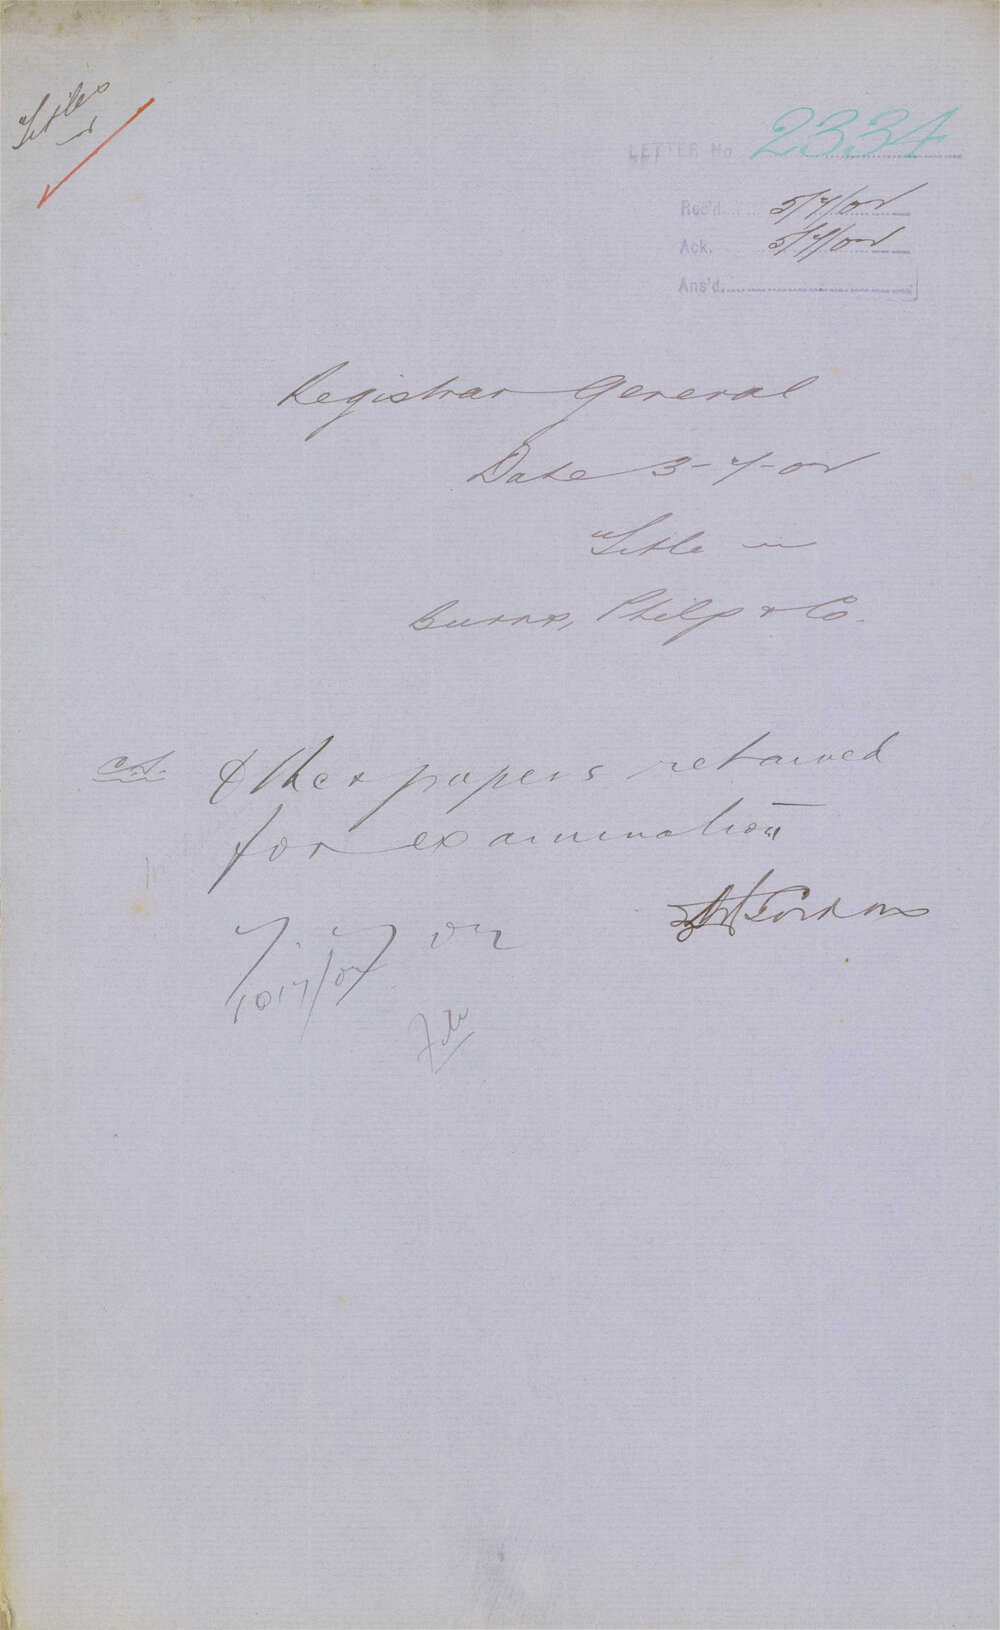 Titles
LETTER No 2334
Rec'd 5/7/02
Ack. 5/7/02
Ans'd.
Registrar General
Date 3-7-02
Title
Burns, Philp & Co.
C.S. Other papers retained
for examination
Gordon
7.7.02
10/7/02
File